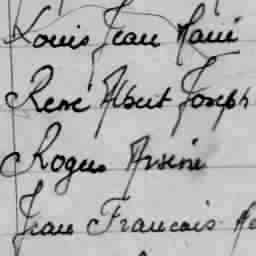 Louis Jean Marie
René Albert Joseph
Rogers Arsène
Jean Francois